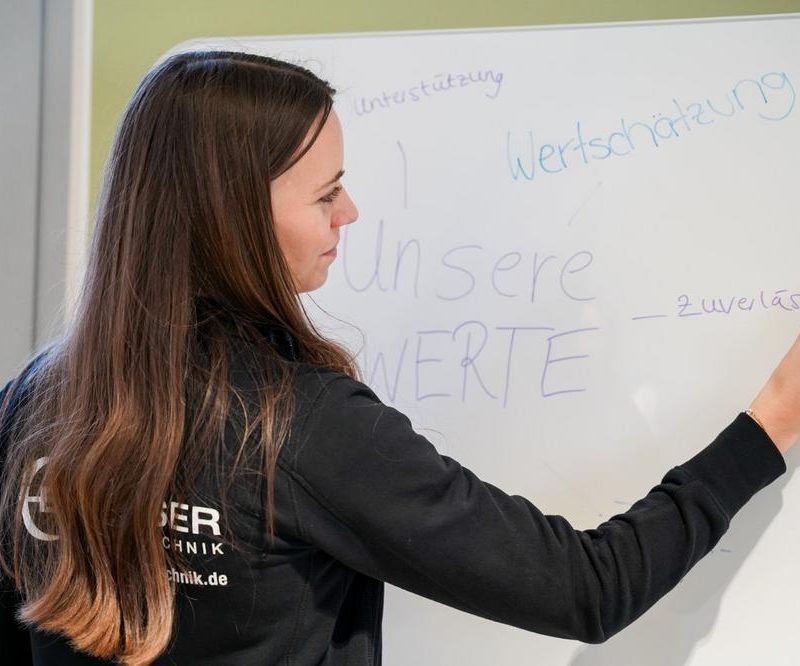 Unterstützung
Wertschätzung
Unsere
WERTE
— zuverläs
SER
CHNIK
chnik.de